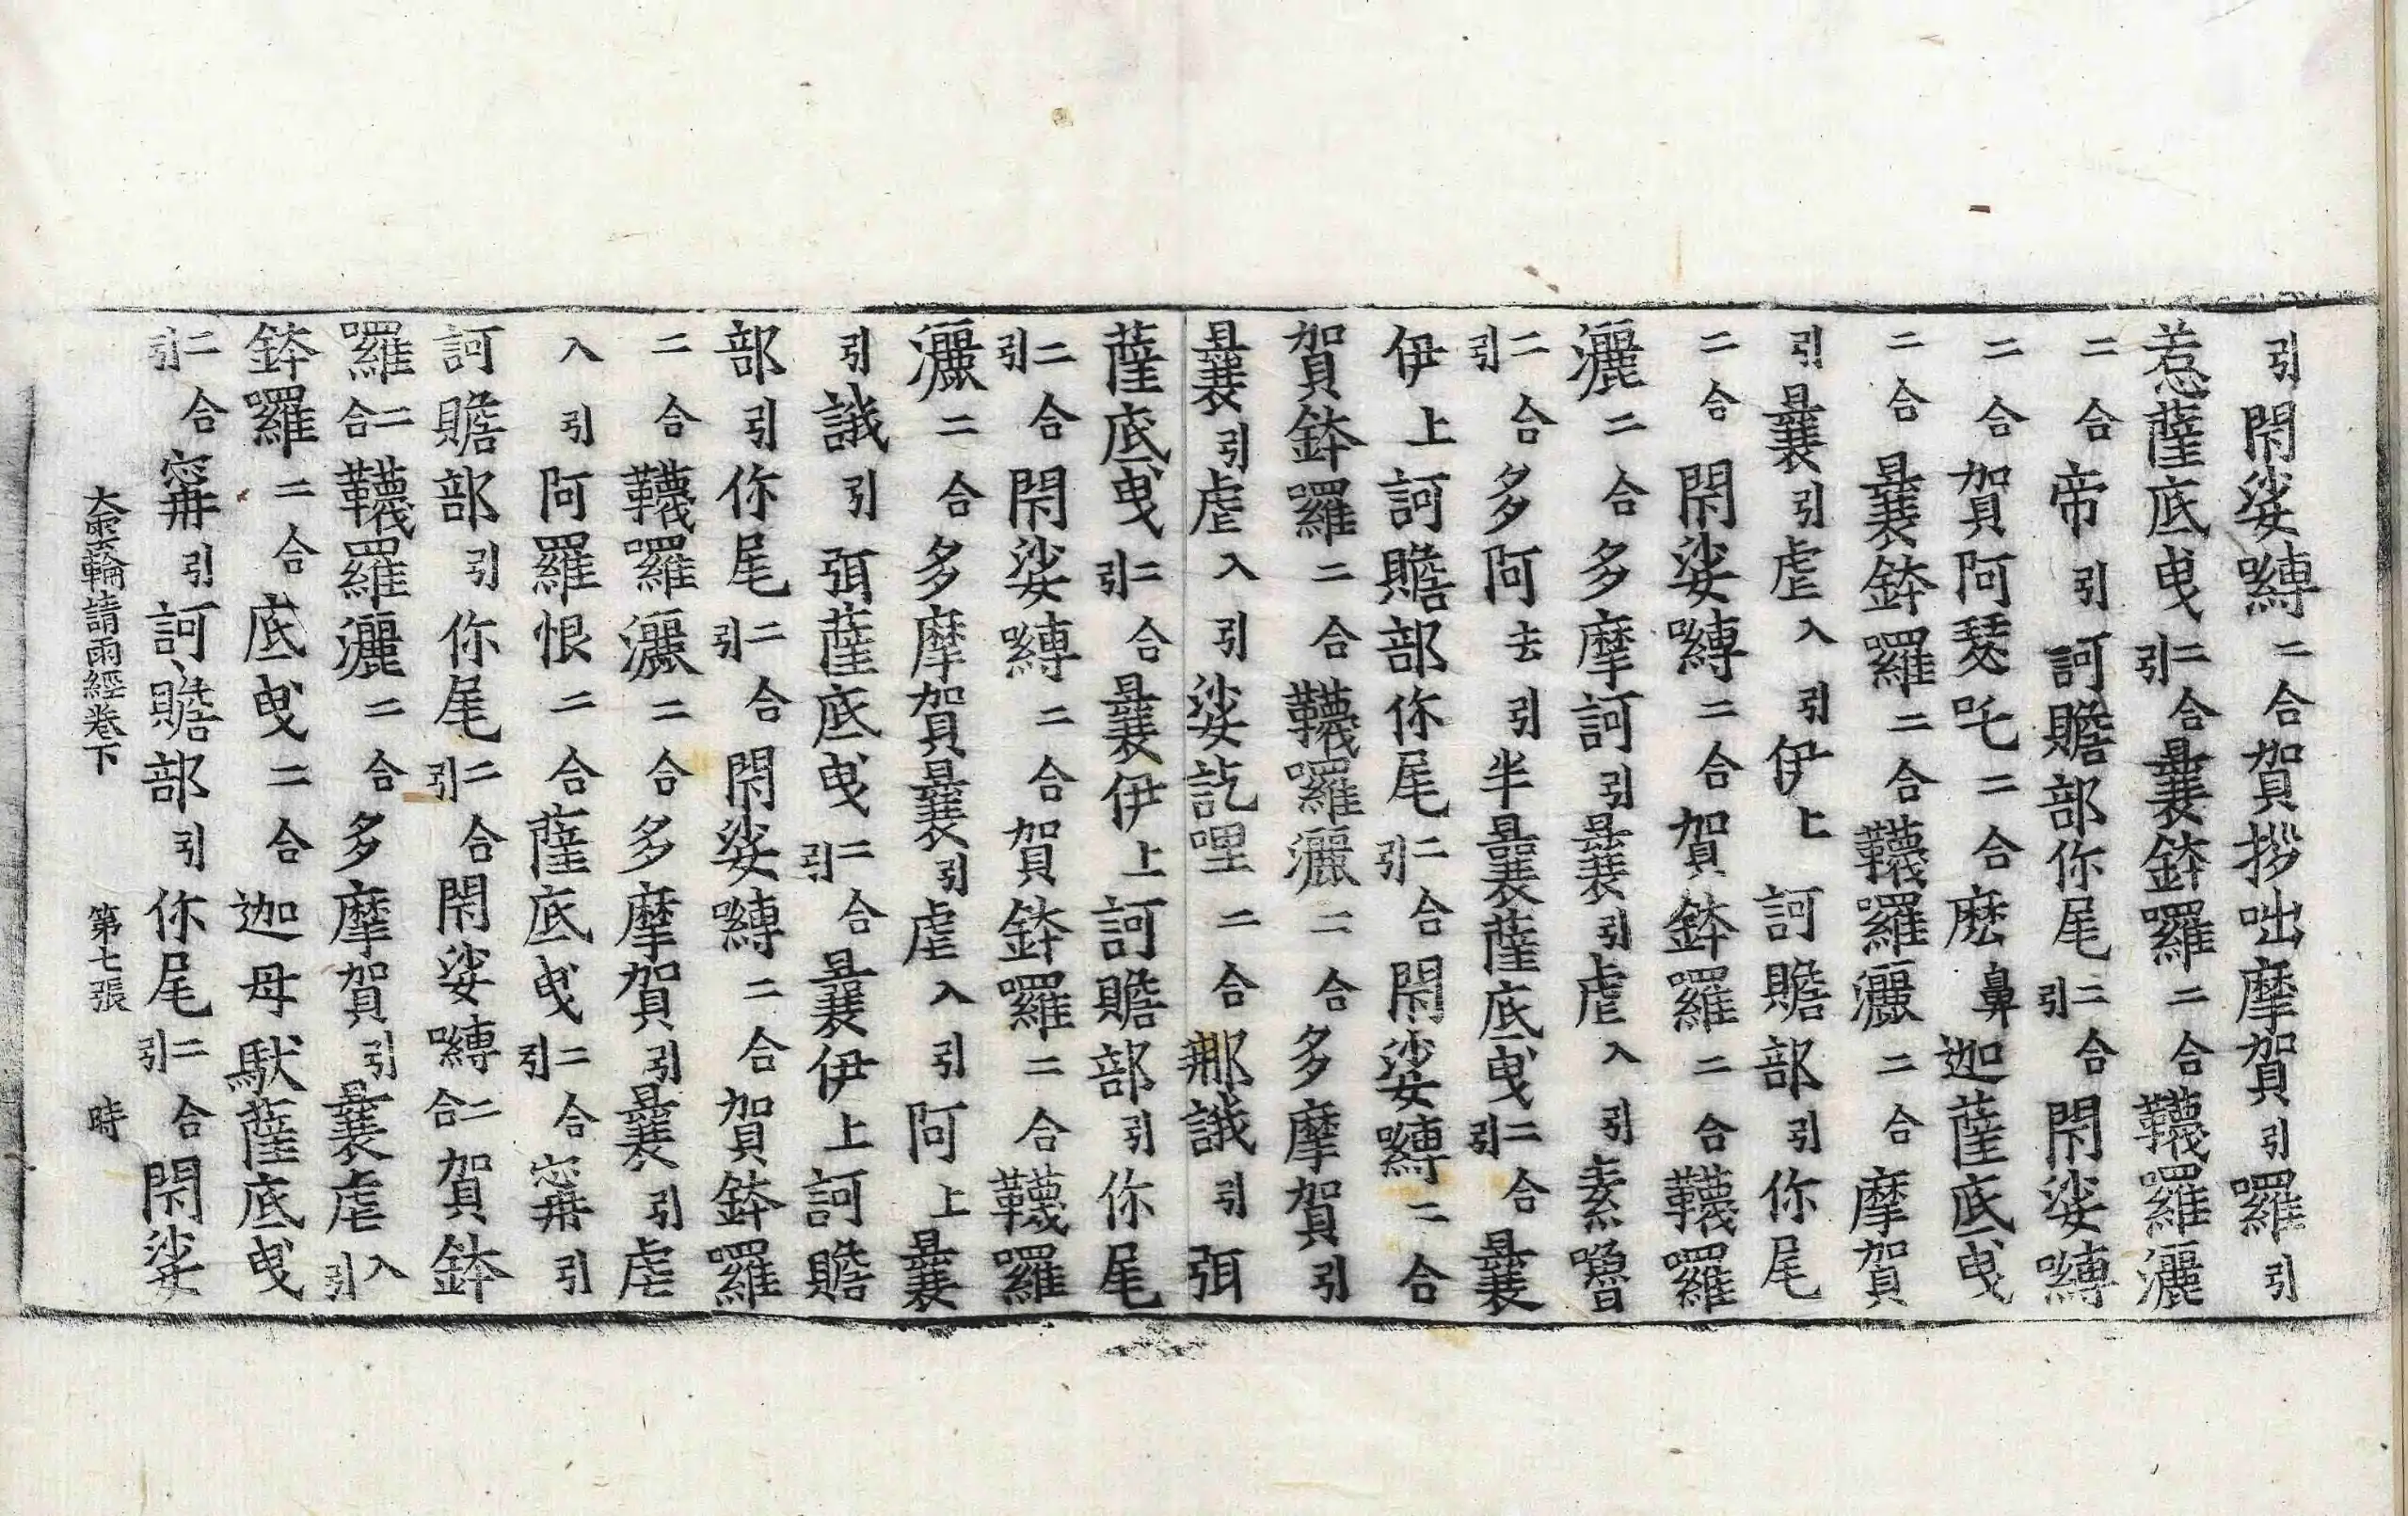 引閇娑嚩二合賀拶咄摩賀引囉引
惹薩底曳二合引曩鉢羅二合韈羅灑
二合帝引訶贍部你尾二合引閇娑嚩
二合賀阿瑟吒二合麽鼻迦薩底曳
二合曩鉢羅二合韈羅灑二合摩賀
引曩引虐入引伊上訶贍部引你尾
二合閇娑嚩二合賀鉢囉二合韈囉
灑二合多摩訶引曩引虐入引素嚕
二合引多阿去引半曩薩底曳二合引曩
伊上訶贍部你尾二合引閇娑嚩二合
賀鉢囉二合韈囉灑二合多摩賀引
曩引虐入引娑訖哩二合那誐引弭
薩底曳二合引曩伊上訶贍部引你尾
二合引閇娑嚩二合賀鉢囉二合韈囉
灑二合多摩賀曩引虐入引阿上曩
引誐引弭薩底曳二合引曩伊上訶贍
部引你尾二合引閇娑嚩二合賀鉢羅
二合韈囉灑二合多摩賀引曩引虐
入引阿羅恨二合薩底曳二合引甯引
訶贍部引你尾二合引閇娑嚩二合賀鉢
囉二合韈羅灑二合多摩賀引曩虐入引
鉢囉二合底曳二合迦母馱薩底曳
二合引甯引訶贍部引你尾二合引閇娑
大雲輪請雨經卷下 第七張 時